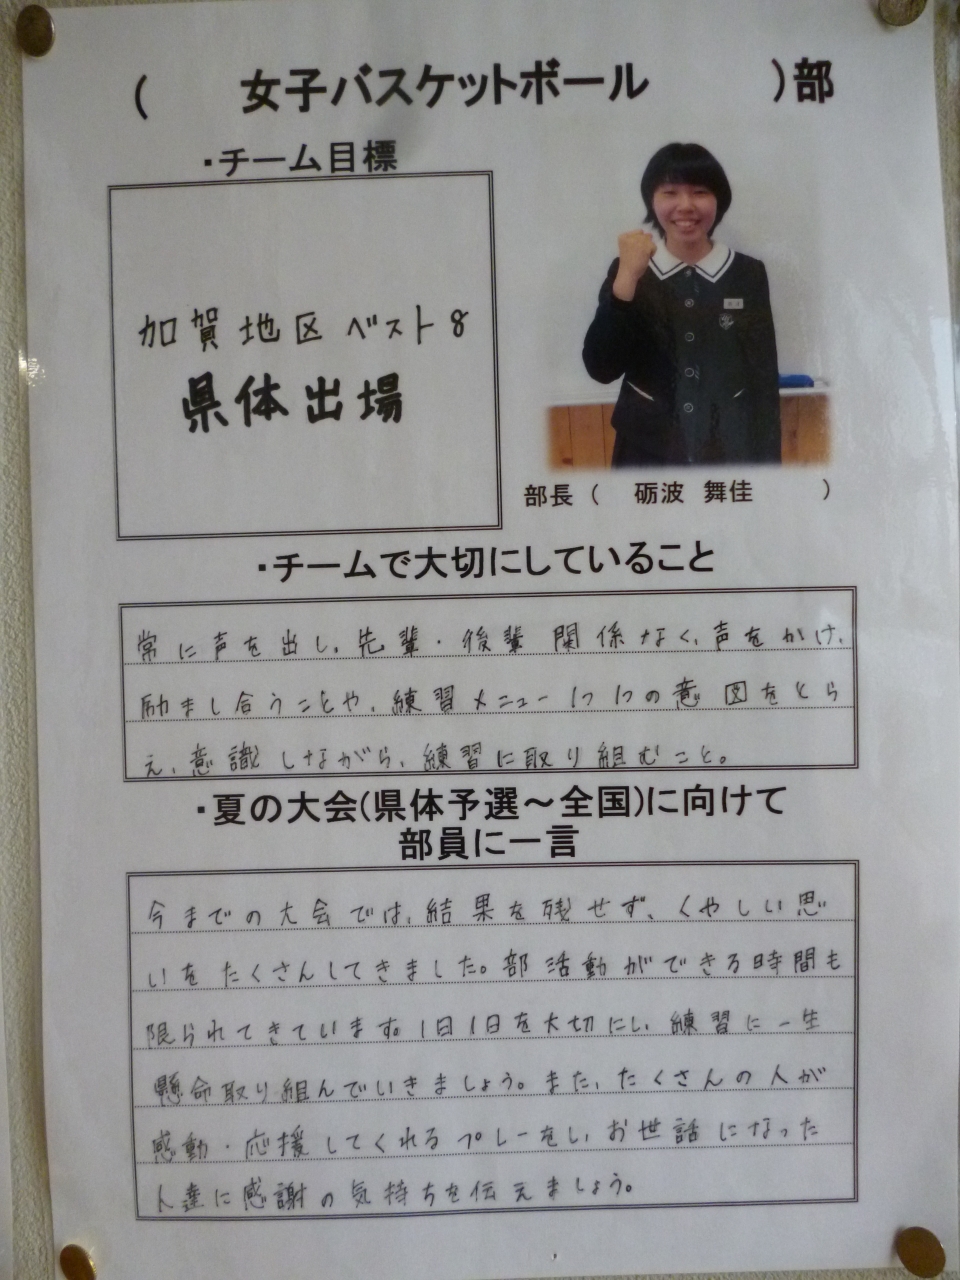 （　女子バスケットボール　）部
・チーム目標
加賀地区ベスト8
県体出場
部長（　砺波　舞佳　）
・チームで大切にしていること
常に声を出し、先輩・後輩関係なく、声をかけ、
励まし合うことや、練習メニュー1つ1つの意図をとら
え、意識しながら、練習に取り組むこと。
・夏の大会(県体予選～全国)に向けて
部員に一言
今までの大会では、結果を残せず、くやしい思
いをたくさんしてきました。部活動ができる時間も
限られてきています。1日1日を大切にし、練習に一生
懸命取り組んでいきましょう。また、たくさんの人が
感動・応援してくれるプレーをし、お世話になった
人達に感謝の気持ちを伝えましょう。